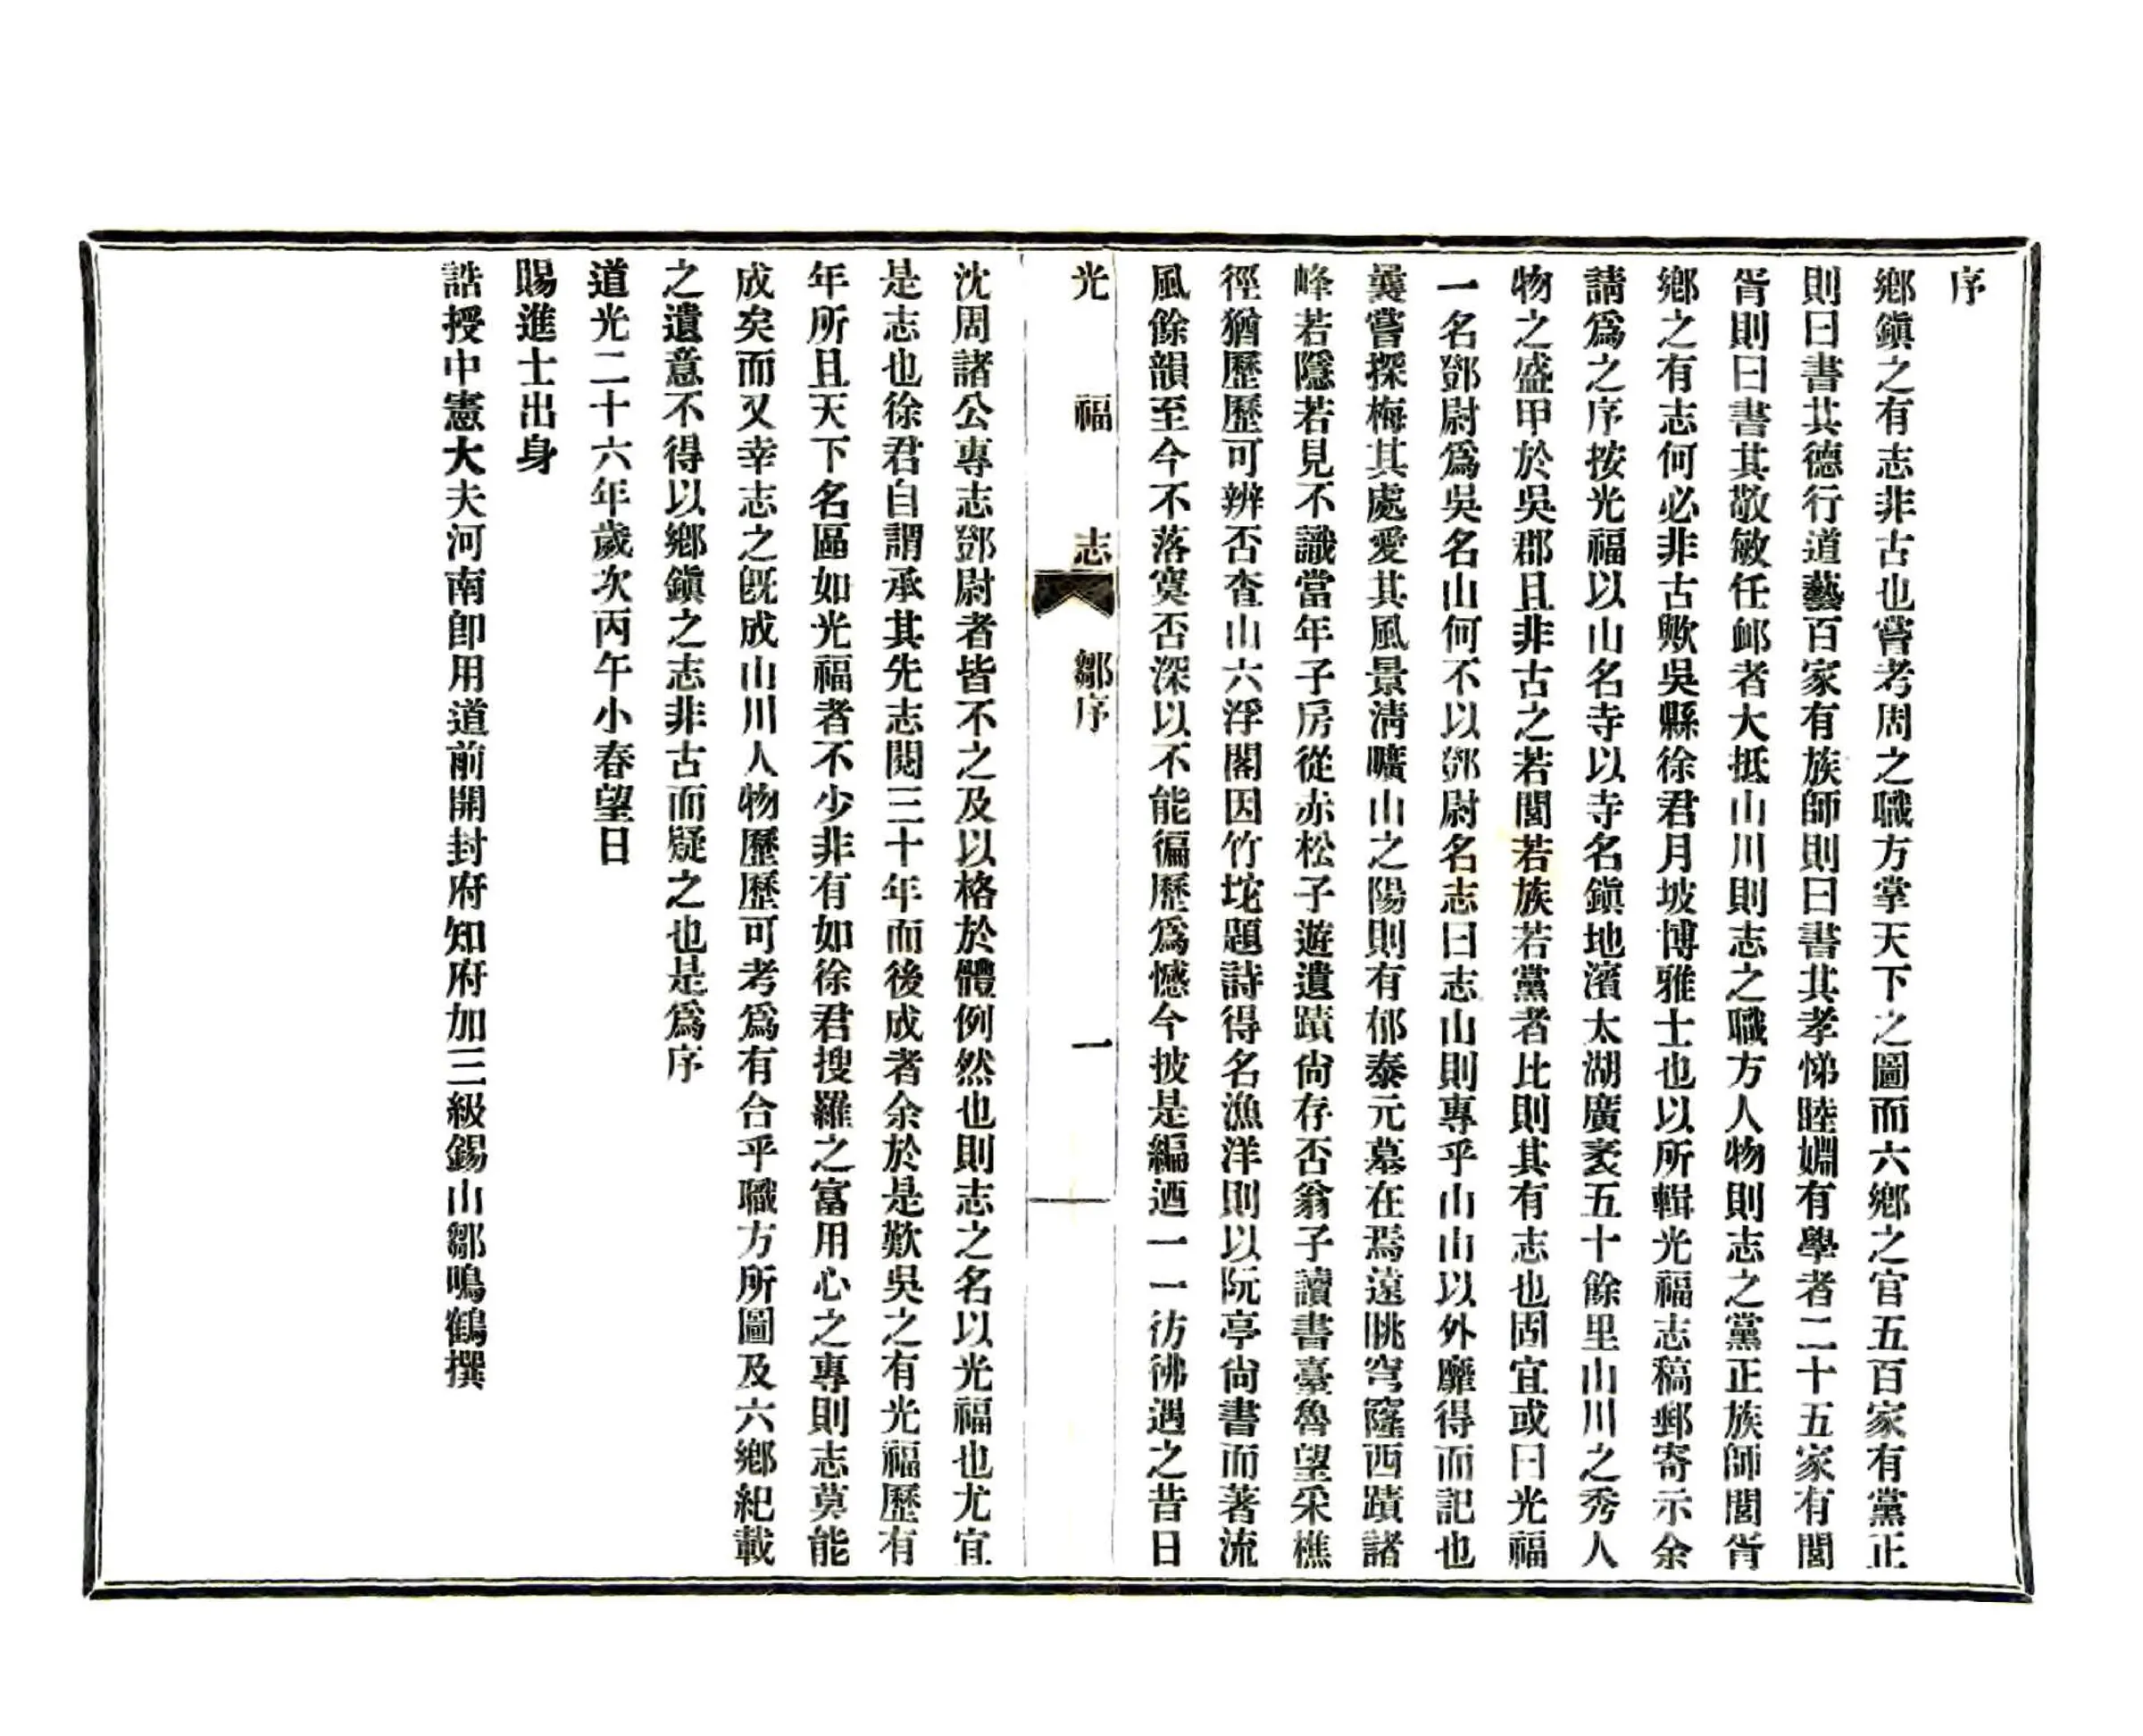 序
鄉鎭之有志非古也嘗考周之職方掌天下之圖而六鄉之官五百家有黨正
則曰書其德行道藝百家有族師則曰書其孝悌睦婣有學者二十五家有閭
胥則曰書其敬敏任䘏者大抵山川則志之職方人物則志之黨正族師閭胥
鄉之有志何必非古歟吳縣徐君月坡博雅士也以所輯光福志稿郵寄示余
請爲之序按光福以山名寺以寺名鎭地濱太湖廣袤五十餘里山川之秀人
物之盛甲於吳郡且非古之若閭若族若黨者比則其有志也固宜或曰光福
一名鄧尉爲吳名山何不以鄧尉名志曰志山則專乎山山以外靡得而記也
曩嘗探梅其處愛其風景淸曠山之陽則有郁泰元墓在焉遠眺穹窿西蹟諸
峰若隱若見不識當年子房從赤松子遊遺蹟尙存否翁子讀書臺魯望采樵
徑猶歷歷可辨否查山六浮閣因竹垞題詩得名漁洋則以阮亭尙書而著流
風餘韻至今不落寞否深以不能徧歷爲憾今披是編迺一一彷彿遇之昔日
光福志 鄒序 一
沈周諸公專志鄧尉者皆不之及以格於體例然也則志之名以光福也尤宜
是志也徐君自謂承其先志閱三十年而後成者余於是歎吳之有光福歷有
年所且天下名區如光福者不少非有如徐君搜羅之富用心之專則志莫能
成矣而又幸志之旣成山川人物歷歷可考爲有合乎職方所圖及六鄉紀載
之遺意不得以鄉鎭之志非古而疑之也是爲序
道光二十六年歲次丙午小春望日
賜進士出身
誥授中憲大夫河南卽用道前開封府知府加三級錫山鄒鳴鶴撰